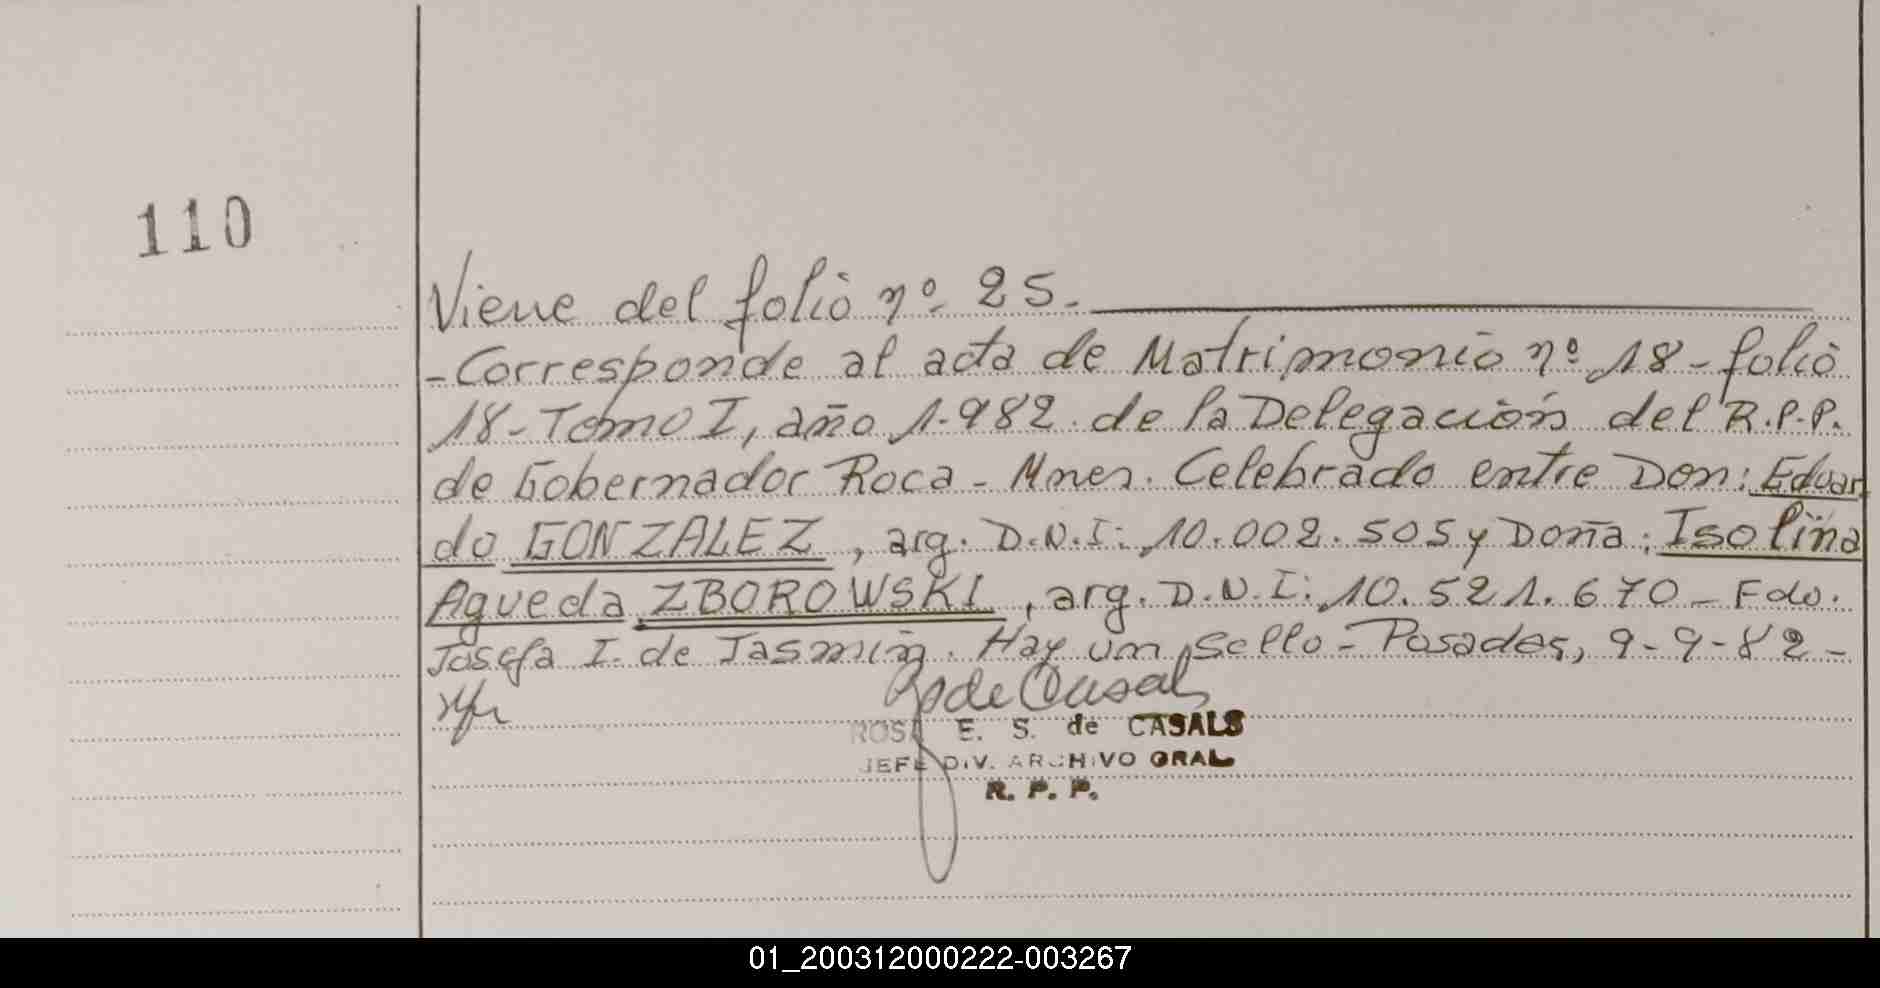 110
Viene del folio nº 25.
-Corresponde al acta de Matrimonio nº 18-folio
18-Tomo I, año 1.982 de la Delegación del R.P.P.
de Gobernador Roca - Mnes. Celebrado entre Don: Eduar
do GONZALEZ, arg. D.N.I: 10.002.505 y Doña: Isolina
Agueda ZBOROWSKI, arg. D.N.I: 10.521.670 - Fdo.
Josefa I. de Jasmín. Hay un sello - Posadas, 9-9-82-
de Casals
ROSA E. S. de CASALS
JEFE DIV. ARCHIVO GRAL
R. P. P.
01_200312000222-003267